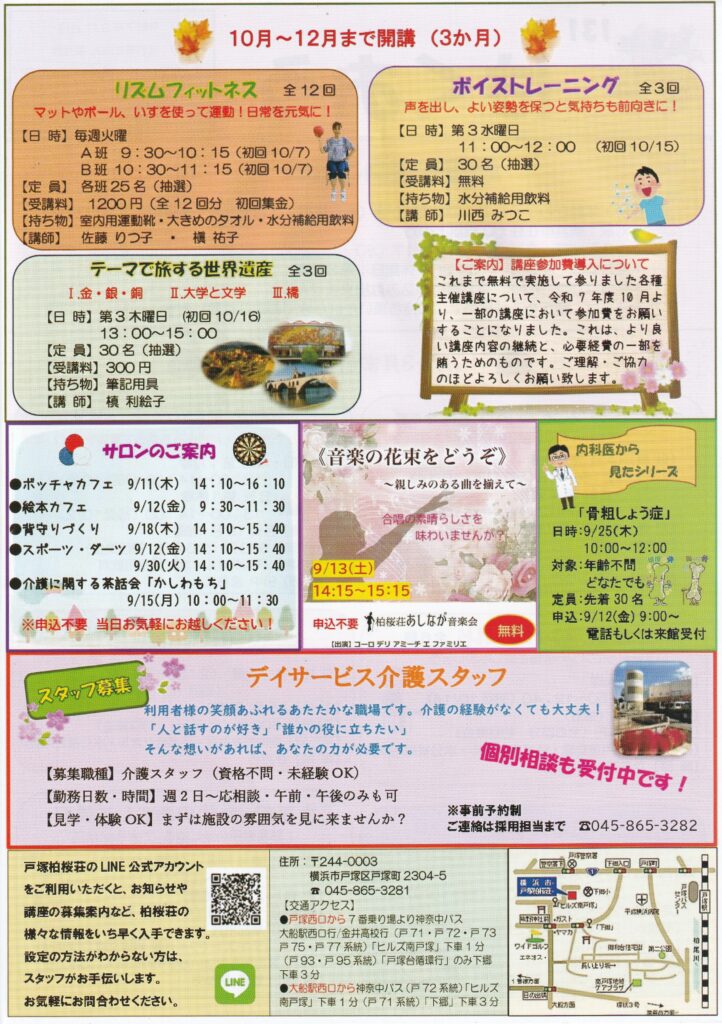 10月～12月まで開講 （3か月）
リズムフィットネス 全12回
マットやボール、いすを使って運動！日常を元気に！
【日 時】毎週火曜
A班 9：30～10：15（初回10/7）
B班 10：30～11：15（初回10/7）
【定 員】各班25名（抽選）
【受講料】 1200円（全12回分 初回集金）
【持ち物】室内用運動靴・大きめのタオル・水分補給用飲料
【講師】 佐藤 りつ子 ・ 槇 祐子
ボイストレーニング 全3回
声を出し、よい姿勢を保つと気持ちも前向きに！
【日 時】第3水曜日
11：00～12：00 （初回10/15）
【定 員】30名（抽選）
【受講料】無料
【持ち物】水分補給用飲料
【講 師】 川西 みつこ
テーマで旅する世界遺産 全3回
Ⅰ.金・銀・銅 Ⅱ.大学と文学 Ⅲ.橋
【日 時】第3木曜日 （初回10/16）
13：00～15：00
【定 員】30名（抽選）
【受講料】300円
【持ち物】筆記用具
【講 師】槙 利絵子
【ご案内】講座参加費導入について
これまで無料で実施して参りました各種
主催講座について、令和7年度10月よ
り、一部の講座において参加費をお願い
することになりました。これは、より良
い講座内容の継続と、必要経費の一部を
賄うためのものです。ご理解・ご協力
のほどよろしくお願い致します。
サロンのご案内
●ボッチャカフェ 9/11(木) 14：10～16：10
●絵本カフェ 9/12(金) 9：30～11：30
●背守りづくり 9/18(木) 14：10～15：40
●スポーツ・ダーツ 9/12(金) 14：10～15：40
9/30(火) 14：10～15：40
●介護に関する茶話会「かしわもち」
9/15(月) 10：00～11：30
※申込不要 当日お気軽にお越しください！
《音楽の花束をどうぞ》
～親しみのある曲を揃えて～
合唱の素晴らしさを
味わいませんか？
9/13(土)
14:15～15:15
申込不要 柏桜荘あしなが音楽会
無料
【出演】コーロ デリ アミーチ エ ファミリエ
内科医から
見たシリーズ
「骨粗しょう症」
日時：9/25(木)
10:00～12:00
対象：年齢不問
どなたでも
定員：先着30名
申込：9/12(金) 9:00～
電話もしくは来館受付
スタッフ募集
デイサービス介護スタッフ
利用者様の笑顔あふれるあたたかな職場です。介護の経験がなくても大丈夫！
「人と話すのが好き」「誰かの役に立ちたい」
そんな想いがあれば、あなたの力が必要です。
個別相談も受付中です！
【募集職種】介護スタッフ（資格不問・未経験OK）
【勤務日数・時間】週2日～応相談・午前・午後のみも可
【見学・体験OK】まずは施設の雰囲気を見に来ませんか？
※事前予約制
ご連絡は採用担当まで ☎045-865-3282
戸塚柏桜荘のLINE公式アカウント
をご利用いただくと、お知らせや
講座の募集案内など、柏桜荘の
様々な情報をいち早く入手できます。
設定の方法がわからない方は、
スタッフがお手伝いします。
お気軽にお問合わせください。
LINE
住所：〒244-0003
横浜市戸塚区戸塚町2304-5
☎ 045-865-3281
【交通アクセス】
●戸塚西口から7番乗り場より神奈中バス
大船駅西口行/金井高校行（戸71・戸72・戸73
戸75・戸77系統）「ヒルズ南戸塚」下車1分
（戸93・戸95系統）「戸塚台循環行」のみ下郷
下車3分
●大船駅西口から神奈中バス（戸72系統）「ヒルズ
南戸塚」下車1分（戸71系統）「下郷」下車3分
戸塚警察署
下郷入口
戸塚町
戸塚駅
下郷小
ヒルズ南戸塚
ガスト
ヤマカ
下郷
ワイドゴルフ
エネオス
第二公園
柏尾川
大船方面